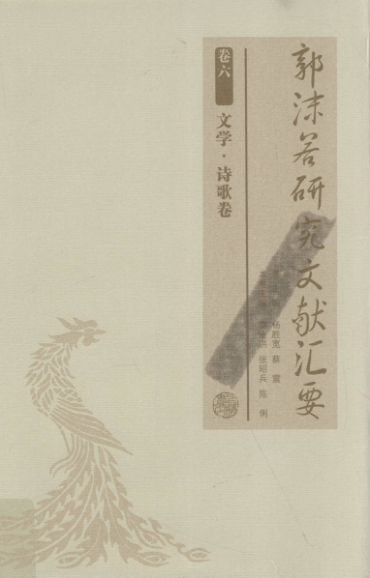 郭沫若研究文献汇要
杨胜宽 蔡震
张昭兵 陈俐
卷六
文学·诗歌卷